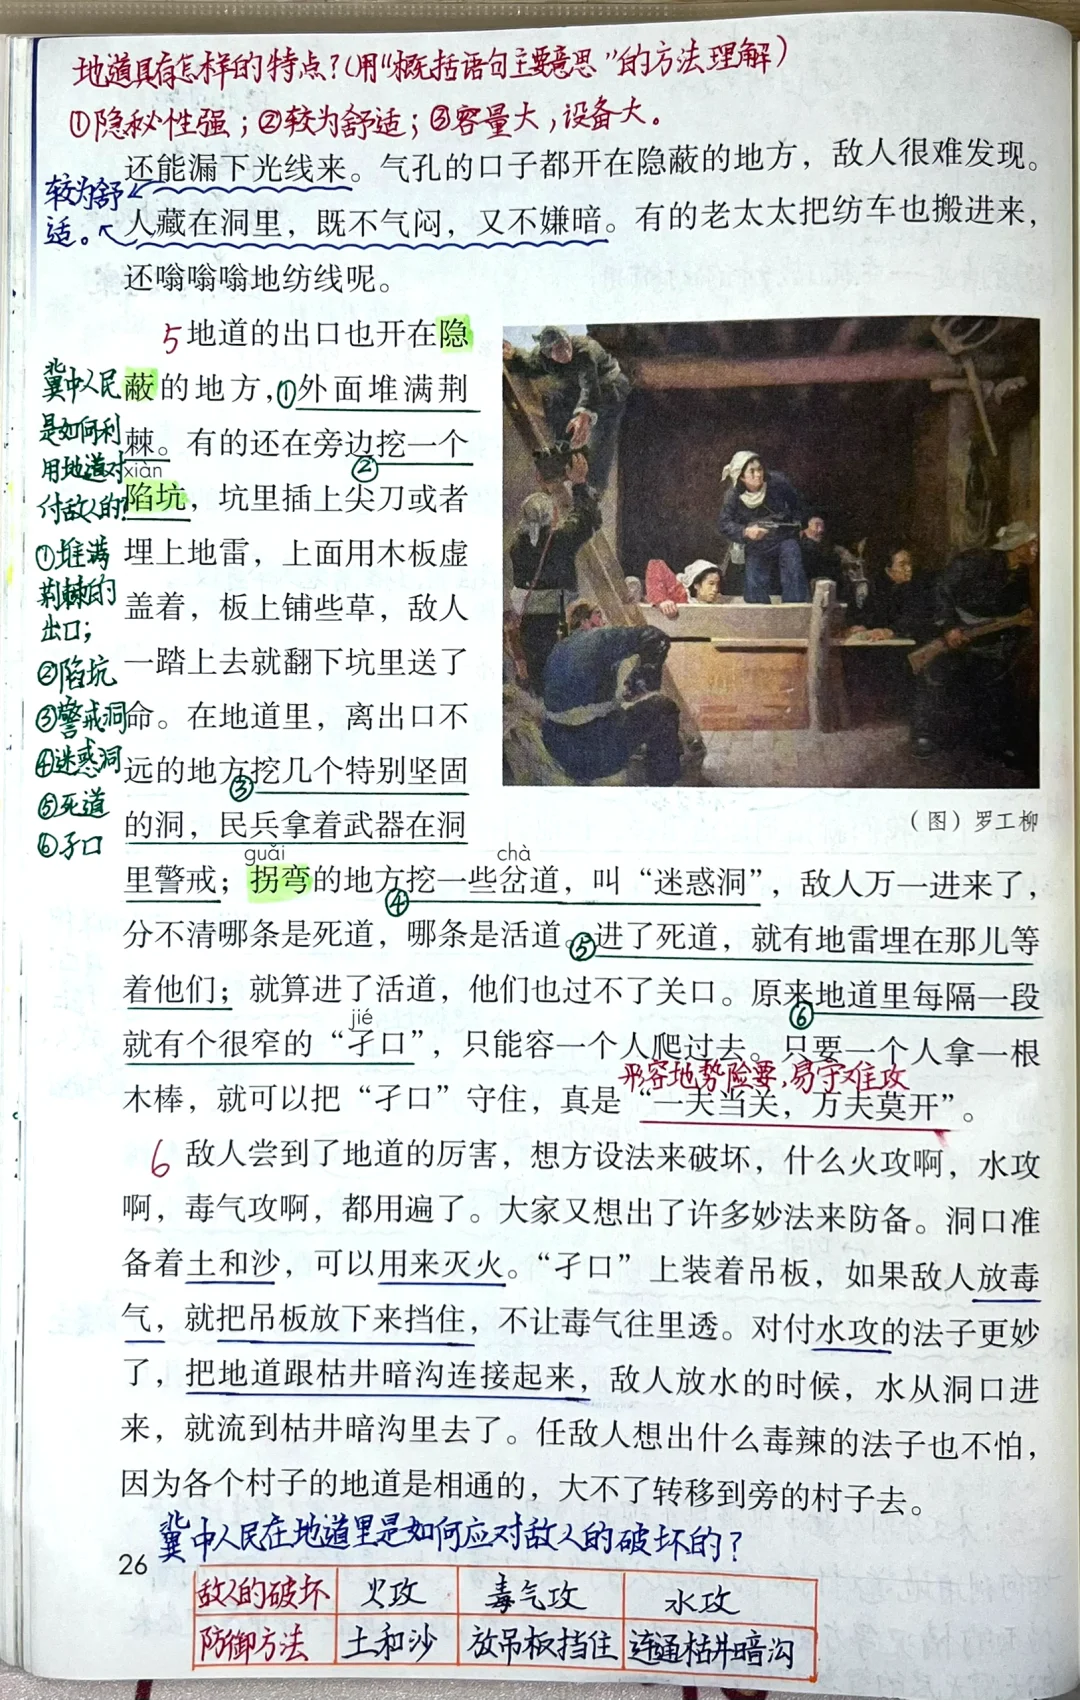 地道具有怎样的特点?(用“概括语句主要意思”的方法理解)
①隐秘性强;②较为舒适;③容量大,设备大。
还能漏下光线来。气孔的口子都开在隐蔽的地方，敌人很难发现。
人藏在洞里，既不气闷，又不嫌暗。有的老太太把纺车也搬进来，
还嗡嗡嗡地纺线呢。
较为舒
适。
5 地道的出口也开在隐
蔽的地方，①外面堆满荆
棘。有的还在旁边挖一个
②
xiàn
陷坑，坑里插上尖刀或者
埋上地雷，上面用木板虚
盖着，板上铺些草，敌人
一踏上去就翻下坑里送了
命。在地道里，离出口不
远的地方挖几个特别坚固
③
的洞，民兵拿着武器在洞
冀中人民
是如何利
用地道对
付敌人的?
①堆满
荆棘的
出口;
②陷坑
③警戒洞
④迷惑洞
⑤死道
⑥孑口
（图）罗工柳
guǎi chà
里警戒；拐弯的地方挖一些岔道，叫“迷惑洞”，敌人万一进来了，
④
分不清哪条是死道，哪条是活道。⑤进了死道，就有地雷埋在那儿等
着他们；就算进了活道，他们也过不了关口。原来地道里每隔一段
jié ⑥
就有个很窄的“孑口”，只能容一个人爬过去。只要一个人拿一根
形容地势险要,易守难攻
木棒，就可以把“孑口”守住，真是“一夫当关，万夫莫开”。
6 敌人尝到了地道的厉害，想方设法来破坏，什么火攻啊，水攻
啊，毒气攻啊，都用遍了。大家又想出了许多妙法来防备。洞口准
备着土和沙，可以用来灭火。“孑口”上装着吊板，如果敌人放毒
气，就把吊板放下来挡住，不让毒气往里透。对付水攻的法子更妙
了，把地道跟枯井暗沟连接起来，敌人放水的时候，水从洞口进
来，就流到枯井暗沟里去了。任敌人想出什么毒辣的法子也不怕，
因为各个村子的地道是相通的，大不了转移到旁的村子去。
冀中人民在地道里是如何应对敌人的破坏的?
26
敌人的破坏 火攻 毒气攻 水攻
防御方法 土和沙 放吊板挡住 连通枯井暗沟